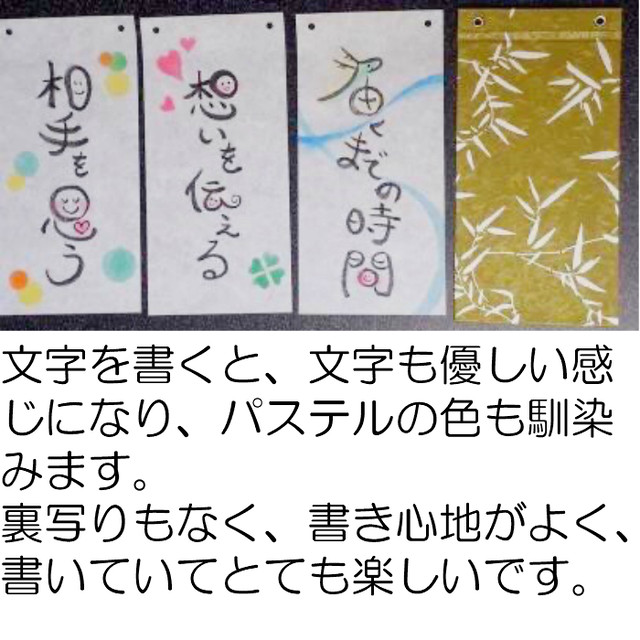 相手を思う
想いを伝える
届くまでの時間
文字を書くと、文字も優しい感
じになり、パステルの色も馴染
みます。
裏写りもなく、書き心地がよく、
書いていてとても楽しいです。